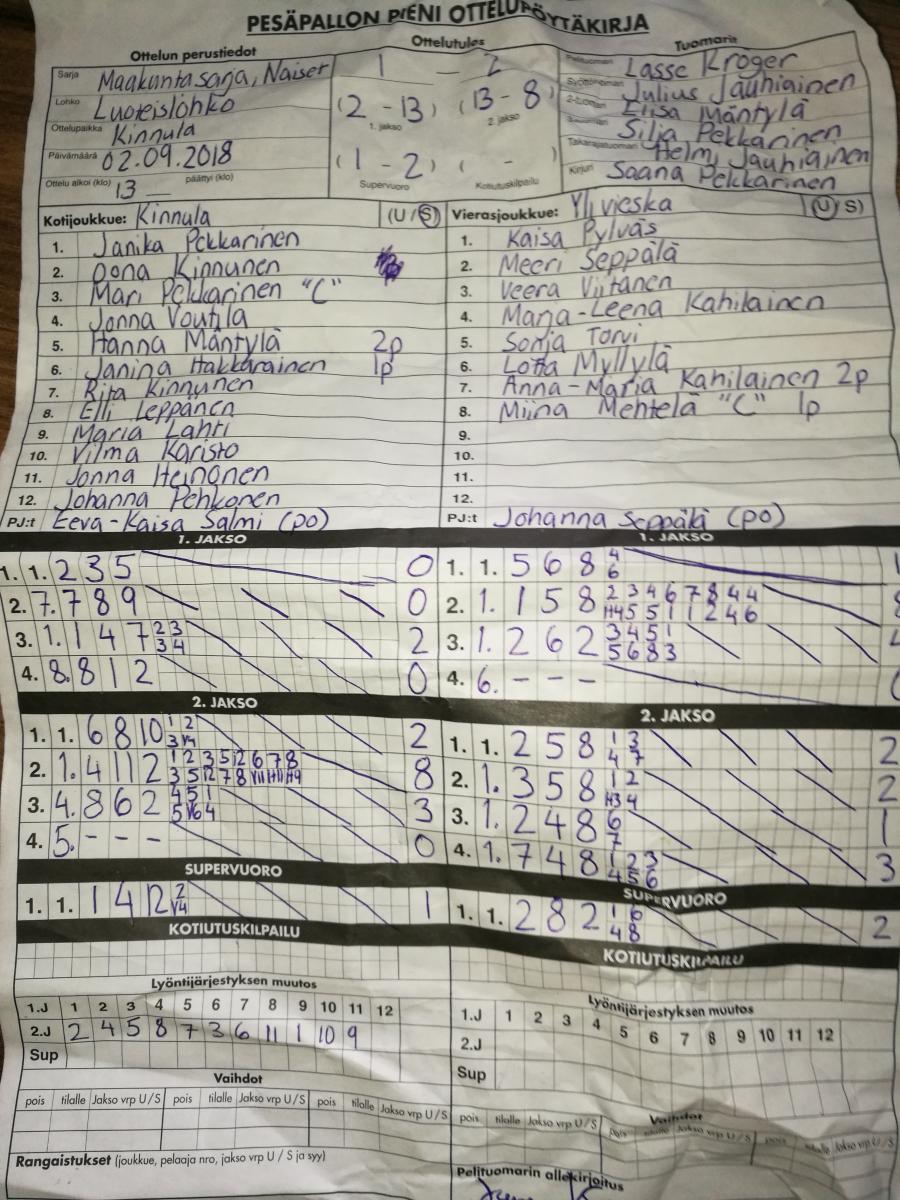 PESÄPALLON PIENI OTTELUPÖYTÄKIRJA
Ottelun perustiedot
Sarja Maakuntasarja, Naiset
Lohko Luoteislohko
Ottelupaikka Kinnula
Päivämäärä 02.09.2018
Ottelu alkoi (klo) 13 päättyi (klo)
Ottelutulos
1 — 2
(2 - 13) (13 - 8)
1. jakso 2. jakso
(1 - 2) ( - )
Supervuoro Kotiutuskilpailu
Tuomarit
Pelituomari Lasse Kröger
Syöttötuomari Julius Jauhiainen
2-tuomari Elisa Mäntylä
Silja Pekkarinen
Takarajatuomari Helmi Jauhiainen
Kirjuri Saana Pekkarinen
Kotijoukkue: Kinnula (U/S)
1. Janika Pekkarinen
2. Oona Kinnunen
3. Mari Pekkarinen "C"
4. Jonna Voutila
5. Hanna Mäntylä 2p
6. Janina Hakkarainen 1p
7. Rita Kinnunen
8. Elli Leppänen
9. Maria Lahti
10. Vilma Karisto
11. Jonna Heinonen
12. Johanna Pehkonen
PJ:t Eeva-Kaisa Salmi (po)
Vierasjoukkue: Ylivieska (U/S)
1. Kaisa Pylväs
2. Meeri Seppälä
3. Veera Viitanen
4. Marja-Leena Kahilainen
5. Sonja Torvi
6. Lotta Myllylä
7. Anna-Maria Kahilainen 2p
8. Miina Mehtelä "C" 1p
9.
10.
11.
12.
PJ:t Johanna Seppälä (po)
1. JAKSO
1. 1. 2 3 5 0
2. 7. 7 8 9 0
3. 1. 1 4 7 2 3 3 4 2
4. 8. 8 1 2 0
2. JAKSO
1. 1. 6 8 10 1 2 3 2
2. 1. 4 11 2 1 2 3 5 12 6 7 8 3 5 12 7 8 8
3. 4. 8 6 2 4 5 1 5 4 3
4. 5. - - - 0
SUPERVUORO
1. 1. 1 4 12 2 1
KOTIUTUSKILPAILU
1. JAKSO
1. 1. 5 6 8 4 6
2. 1. 1 5 8 2 3 4 6 7 8 4 4 5 5 1 1 2 4 6
3. 1. 2 6 2 3 4 5 1 5 6 8 3
4. 6. - - -
2. JAKSO
1. 1. 2 5 8 1 3 4 7 2
2. 1. 3 5 8 1 2 4 2
3. 1. 2 4 8 6 7 1
4. 1. 7 4 8 1 2 3 4 5 6 3
SUPERVUORO
1. 1. 2 8 2 1 6 4 8 2
KOTIUTUSKILPAILU
Lyöntijärjestyksen muutos
1.J 1 2 3 4 5 6 7 8 9 10 11 12
2.J 2 4 5 8 7 3 6 11 1 10 9
Sup
Vaihdot
pois tilalle Jakso vrp U/S pois tilalle Jakso vrp U/S pois tilalle Jakso vrp U/S
Rangaistukset (joukkue, pelaaja nro, jakso vrp U / S ja syy)
Lyöntijärjestyksen muutos
1.J 1 2 3 4 5 6 7 8 9 10 11 12
2.J
Sup
Vaihdot
pois tilalle Jakso vrp U/S pois tilalle Jakso vrp U/S pois tilalle Jakso vrp U/S
Pelituomarin allekirjoitus